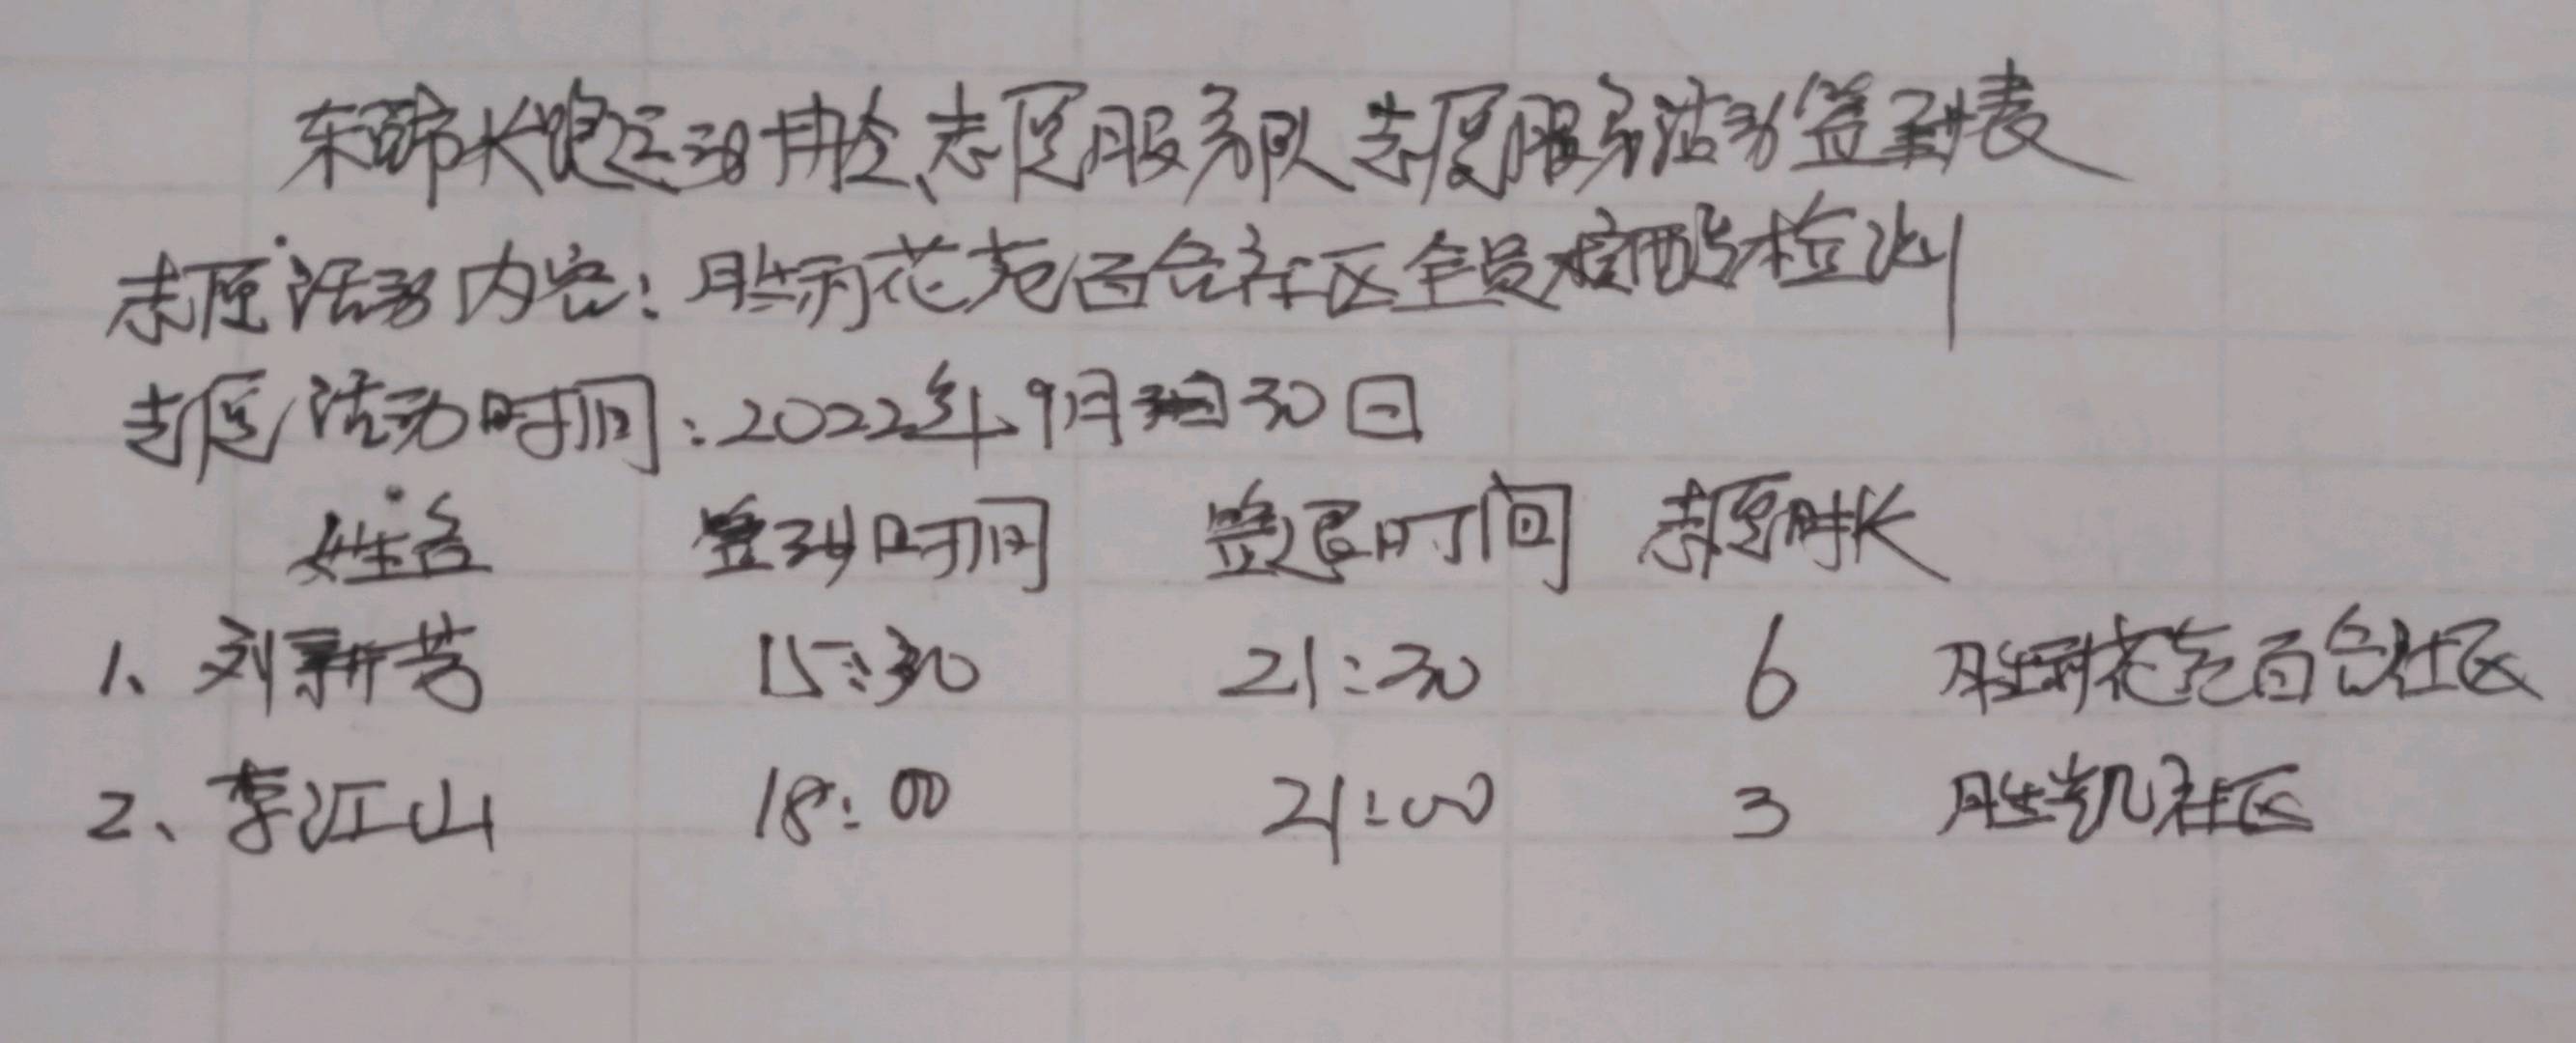 东营市长跑运动协会志愿服务队志愿服务活动签到表
志愿活动内容：胜利花苑百合社区全员核酸检测
志愿活动时间：2022年9月30日
姓名 签到时间 签退时间 志愿时长
1、刘新芳 15:30 21:30 6 胜利花苑百合社区
2、李江山 18:00 21:00 3 胜凯社区